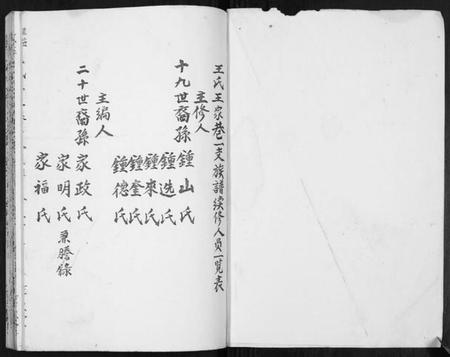 王氏王家巷一支族譜续修人员一覧表
主修人
十九世裔孫 鍾山氏
鍾选氏
鍾來氏
鍾奎氏
鍾德氏
主编人
二十世裔孫 家政氏
家明氏 兼謄錄
家福氏